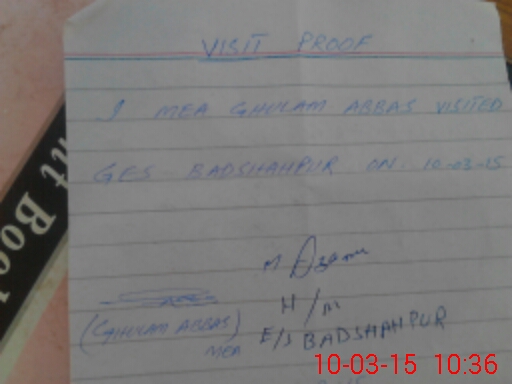 VISIT PROOF
I MEA GHULAM ABBAS VISITED
GES BADSHAHPUR ON 10-03-15
M Azam
H/M
(GHULAM ABBAS)
MEA
E/S BADSHAHPUR
10-03-15 10:36